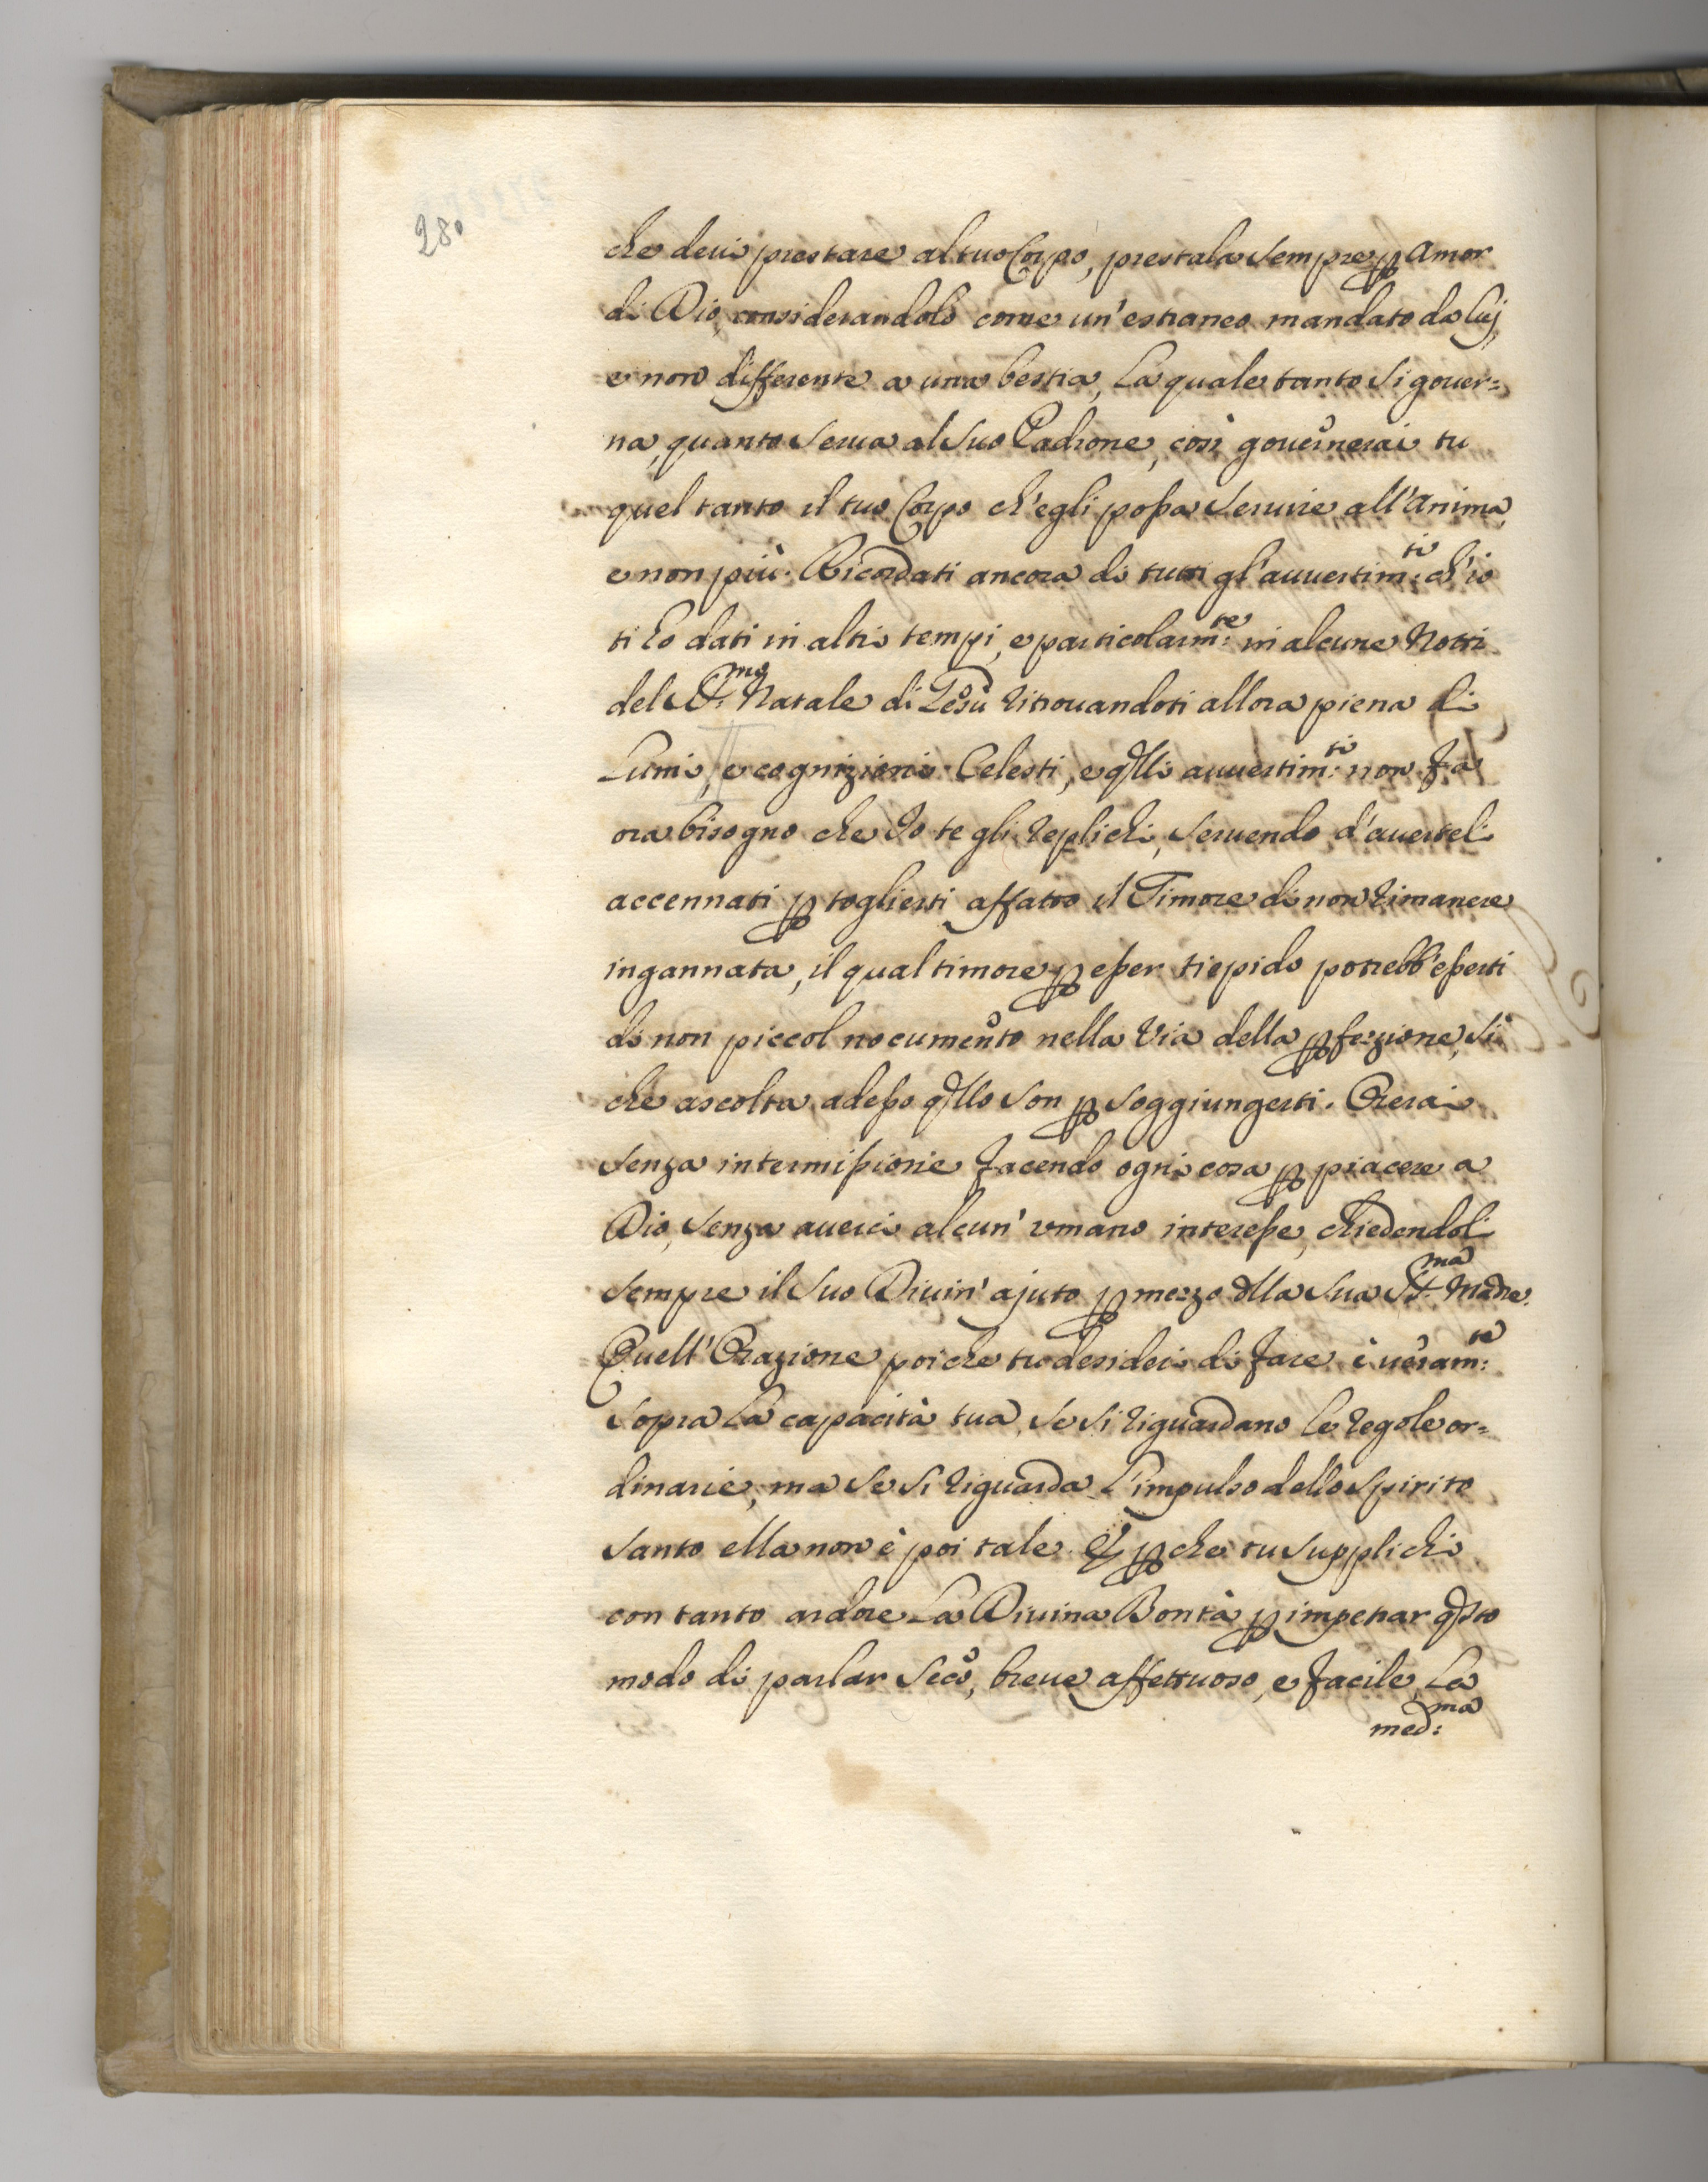 280
che devi prestare al tuo Corpo, prestala sempre p Amor
di Dio, considerandolo come un' estraneo mandato da Luj,
e non differente a una bestia, La quale tanto si gover=
na, quanto serva al suo Padrone, così governerai tu
quel tanto il tuo Corpo ch'egli possa servire all'Anima,
e non più. Ricordati ancora di tutti gl'avvertim:ti ch'io
ti ho dati in altri tempi, e particolarm:te in alcune Notti
del S.mo Natale di Gesù ritrovandoti allora piena di
Lumi, e cognizioni Celesti, e qlli avvertim:ti non fa
ora bisogno che Io te gli replichi, servendo d'averteli
accennati p toglierti affatto il Timore di non rimanere
ingannata, il qual timore p esser tiepido potrebb'esserti
di non piccol nocumento nella Via della pfezione, si
che ascolta adesso qllo son p soggiungerti. Orerai
senza intermissione facendo ogni cosa p piacere a
Dio, senza averci alcun' vmano interesse, chiedendoli
sempre il suo Divin' ajuto p mezzo dlla sua S.ma Madre.
Quell' Orazione poi che tu desideri di fare è veram:te
sopra La capacità tua, se si riguardano le regole or=
dinarie, ma se si riguarda L'impulso dello Spirito
Santo ella non è poi tale. E pche tu supplichi
con tanto ardore La Divina Bontà p impetrar qsto
modo di parlar seco, breve affettuoso, e facile, La
med:ma